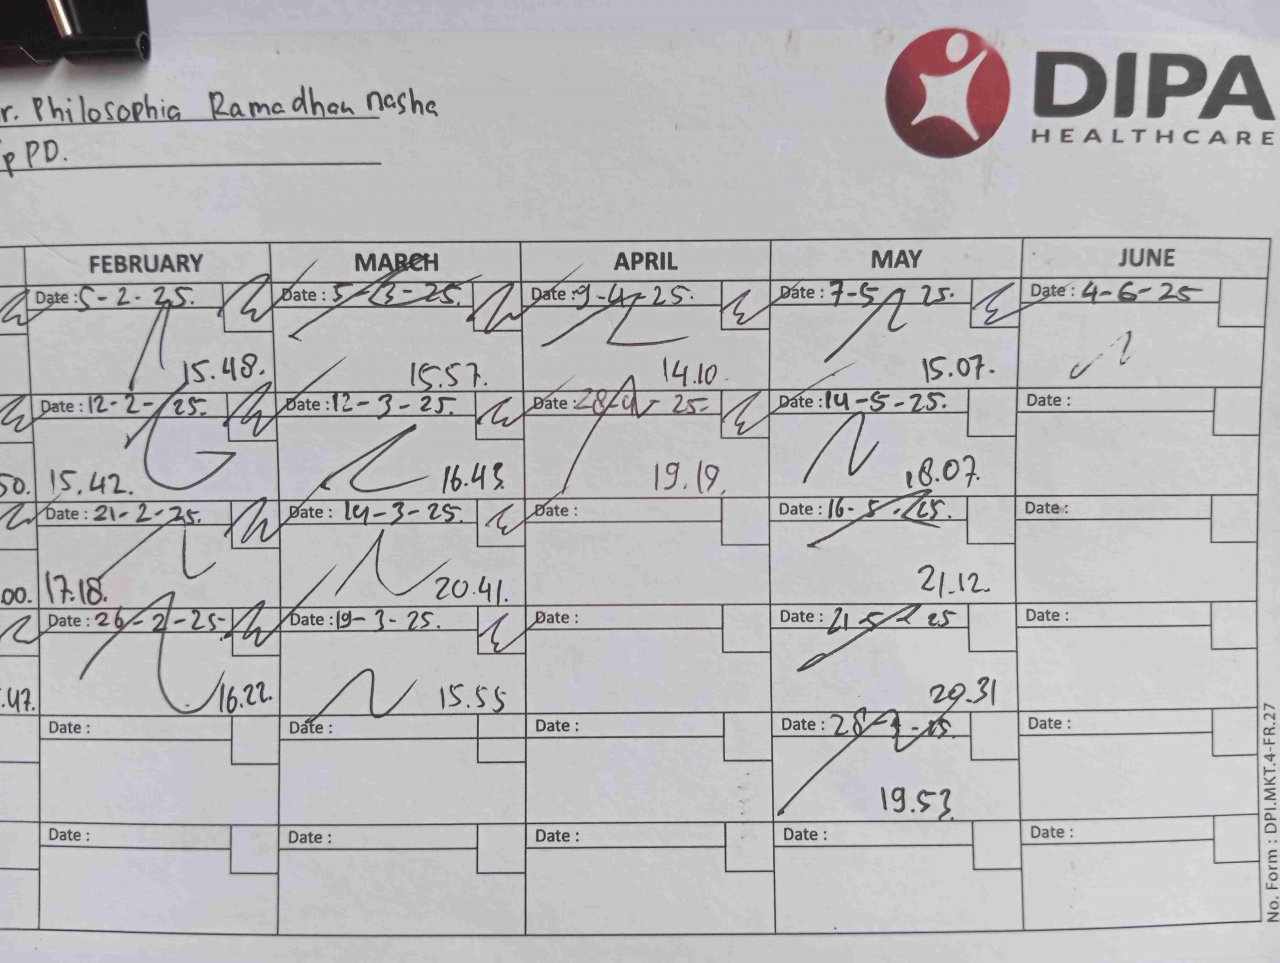 r. Philosophia Ramadhan nasha
p PD.
DIPA
HEALTHCARE
FEBRUARY MARCH APRIL MAY JUNE
Date : 5-2-25. Date : 5-3-25. Date : 9-4-25. Date : 7-5 25. Date : 4-6-25
15.48. 15.57. 14.10 15.07.
Date : 12-2-25. Date : 12-3-25. Date : 28-4-25- Date : 14-5-25. Date :
50. 15.42. 16.43. 19.19. 18.07.
Date : 21-2-25. Date : 14-3-25. Date : Date : 16-5-25. Date :
00. 17.18. 20.41. 21.12.
Date : 26-2-25- Date : 19-3-25. Date : Date : 21-5-25 Date :
.47. 16.22. 15.55 20.31
Date : Date : Date : Date : 28-5-25. Date :
19.53.
Date : Date : Date : Date : Date :
No. Form : DPI.MKT.4-FR.27